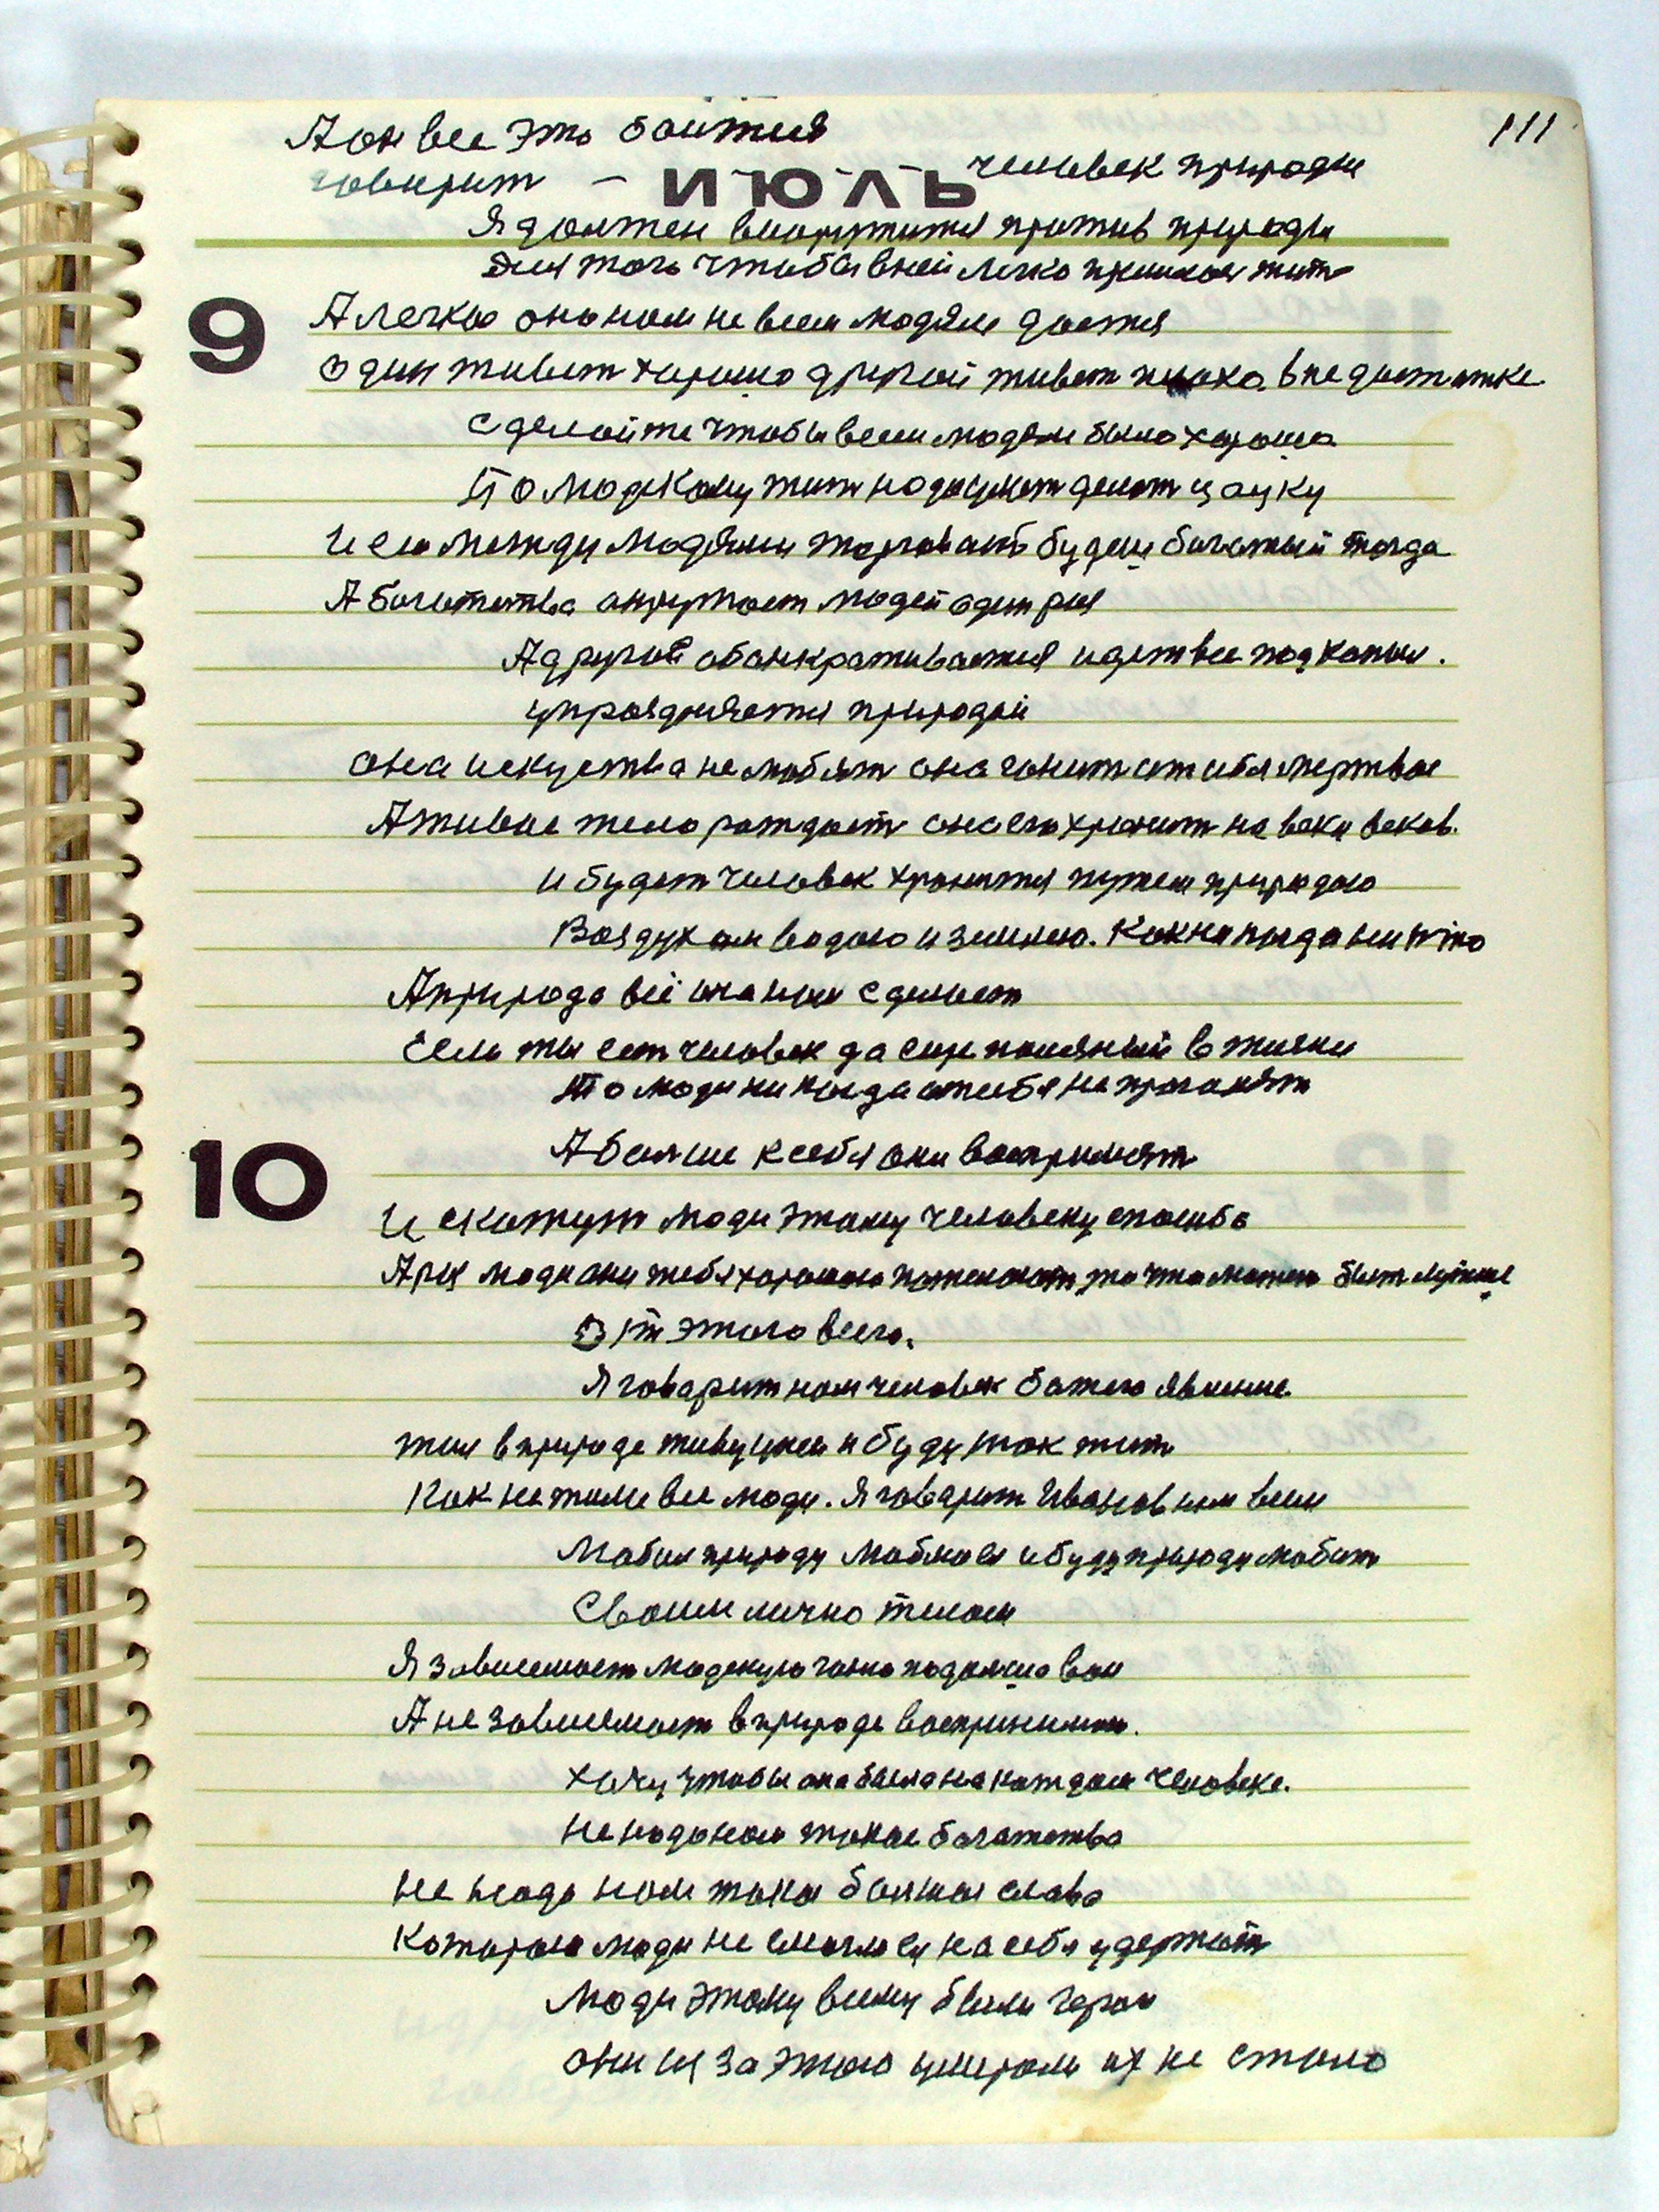 111
А он все это боится
говорит — человек природы
ИЮЛЬ
Я должен вооружится против природы
Для того чтобы в ней легко пришлос жит
9
А легко она нам не всем людям дается
один живет хорошо другой живет плохо в недостатке
сделайте чтобы всем людям было хорошо
То людскому жит надоест делат
И ею между людями торговать будеш богатый тогда
А богатства окружает людей один раз
А другой обанкрачивается идет все под копыл.
упраздняется природой
она искуства не любят она гонит от себя мертвое
А живое тело рождает она его хранит на веки веков.
и будет человек хранится путем природою
Воздухом водою и землею. Как некогда никто
А природа всё она нам сделает
Если ты ест человек да еще полезный в жизни
то люди никогда от себя не прогонят
10
А больше к себя они воспримят
И скажут люди этому человеку спасибо
А раз люди они тебя хорошого то что может быт лутше
От этого всего.
Я говарит нам человек божего явление
жил в природе живу у ней и буду так жит
Как не жили все люди. Я говарит Иванов нам всем
Любил природу люблю ея и буду природу любит
Своим лично телом
Я зависемост людскую
А не зависемост в природе воспринимаю.
хочу чтобы она была на каждом человеке.
Не надо нам такое богатства
не надо нам такая большая слава
Которою люди не смогли еу на себя удержат
Люди этому всему были герои
они из за этого умерали их не стало